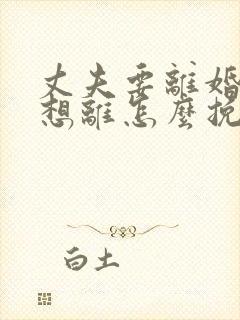 丈夫要離婚
想離怎麼挽
白土